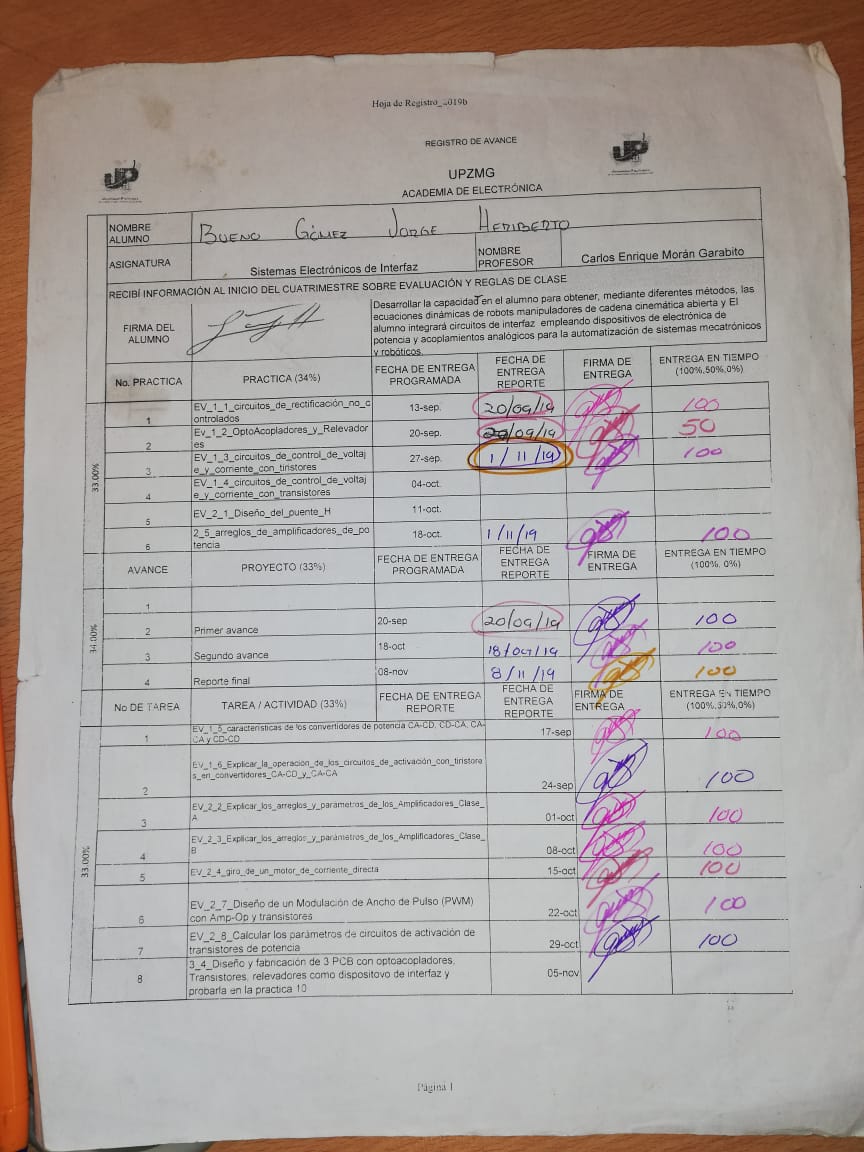 Hoja de Registro_2019b
REGISTRO DE AVANCE
UPZMG
ACADEMIA DE ELECTRÓNICA
NOMBRE ALUMNO BUENO GÓMEZ JORGE HERIBERTO
ASIGNATURA Sistemas Electrónicos de Interfaz NOMBRE PROFESOR Carlos Enrique Morán Garabito
RECIBÍ INFORMACIÓN AL INICIO DEL CUATRIMESTRE SOBRE EVALUACIÓN Y REGLAS DE CLASE
FIRMA DEL ALUMNO
Desarrollar la capacidad en el alumno para obtener, mediante diferentes métodos, las
ecuaciones dinámicas de robots manipuladores de cadena cinemática abierta y El
alumno integrará circuitos de interfaz empleando dispositivos de electrónica de
potencia y acoplamientos analógicos para la automatización de sistemas mecatrónicos
y robóticos.
No. PRACTICA PRACTICA (34%) FECHA DE ENTREGA PROGRAMADA FECHA DE ENTREGA REPORTE FIRMA DE ENTREGA ENTREGA EN TIEMPO (100%,50%,0%)
33.00%
1 EV_1_1_circuitos_de_rectificación_no_controlados 13-sep. 20/09/19 100
2 Ev_1_2_OptoAcopladores_y_Relevadores 20-sep. 20/09/19 50
3 EV_1_3_circuitos_de_control_de_voltaje_y_corriente_con_tiristores 27-sep. 1/11/19 100
4 EV_1_4_circuitos_de_control_de_voltaje_y_corriente_con_transistores 04-oct.
5 EV_2_1_Diseño_del_puente_H 11-oct.
6 2_5_arreglos_de_amplificadores_de_potencia 18-oct. 1/11/19 100
AVANCE PROYECTO (33%) FECHA DE ENTREGA PROGRAMADA FECHA DE ENTREGA REPORTE FIRMA DE ENTREGA ENTREGA EN TIEMPO (100%, 0%)
34.00%
1
2 Primer avance 20-sep 20/09/19 100
3 Segundo avance 18-oct 18/oct/19 100
4 Reporte final 08-nov 8/11/19 100
No DE TAREA TAREA / ACTIVIDAD (33%) FECHA DE ENTREGA REPORTE FECHA DE ENTREGA REPORTE FIRMA DE ENTREGA ENTREGA EN TIEMPO (100%,50%,0%)
33.00%
1 EV_1_5_características de los convertidores de potencia CA-CD, CD-CA, CA-CA y CD-CD 17-sep 100
2 EV_1_6_Explicar_la_operación_de_los_circuitos_de_activación_con_tiristores_en_convertidores_CA-CD_y_CA-CA 24-sep 100
3 EV_2_2_Explicar_los_arreglos_y_parametros_de_los_Amplificadores_Clase_A 01-oct 100
4 EV_2_3_Explicar_los_arreglos_y_parámetros_de_los_Amplificadores_Clase_B 08-oct 100
5 EV_2_4_giro_de_un_motor_de_corriente_directa 15-oct 100
6 EV_2_7_Diseño de un Modulación de Ancho de Pulso (PWM) con Amp-Op y transistores 22-oct 100
7 EV_2_8_Calcular los parámetros de circuitos de activación de transistores de potencia 29-oct 100
8 3_4_Diseño y fabricación de 3 PCB con optoacopladores, Transistores, relevadores como dispositovo de interfaz y probarla en la practica 10 05-nov
Página 1